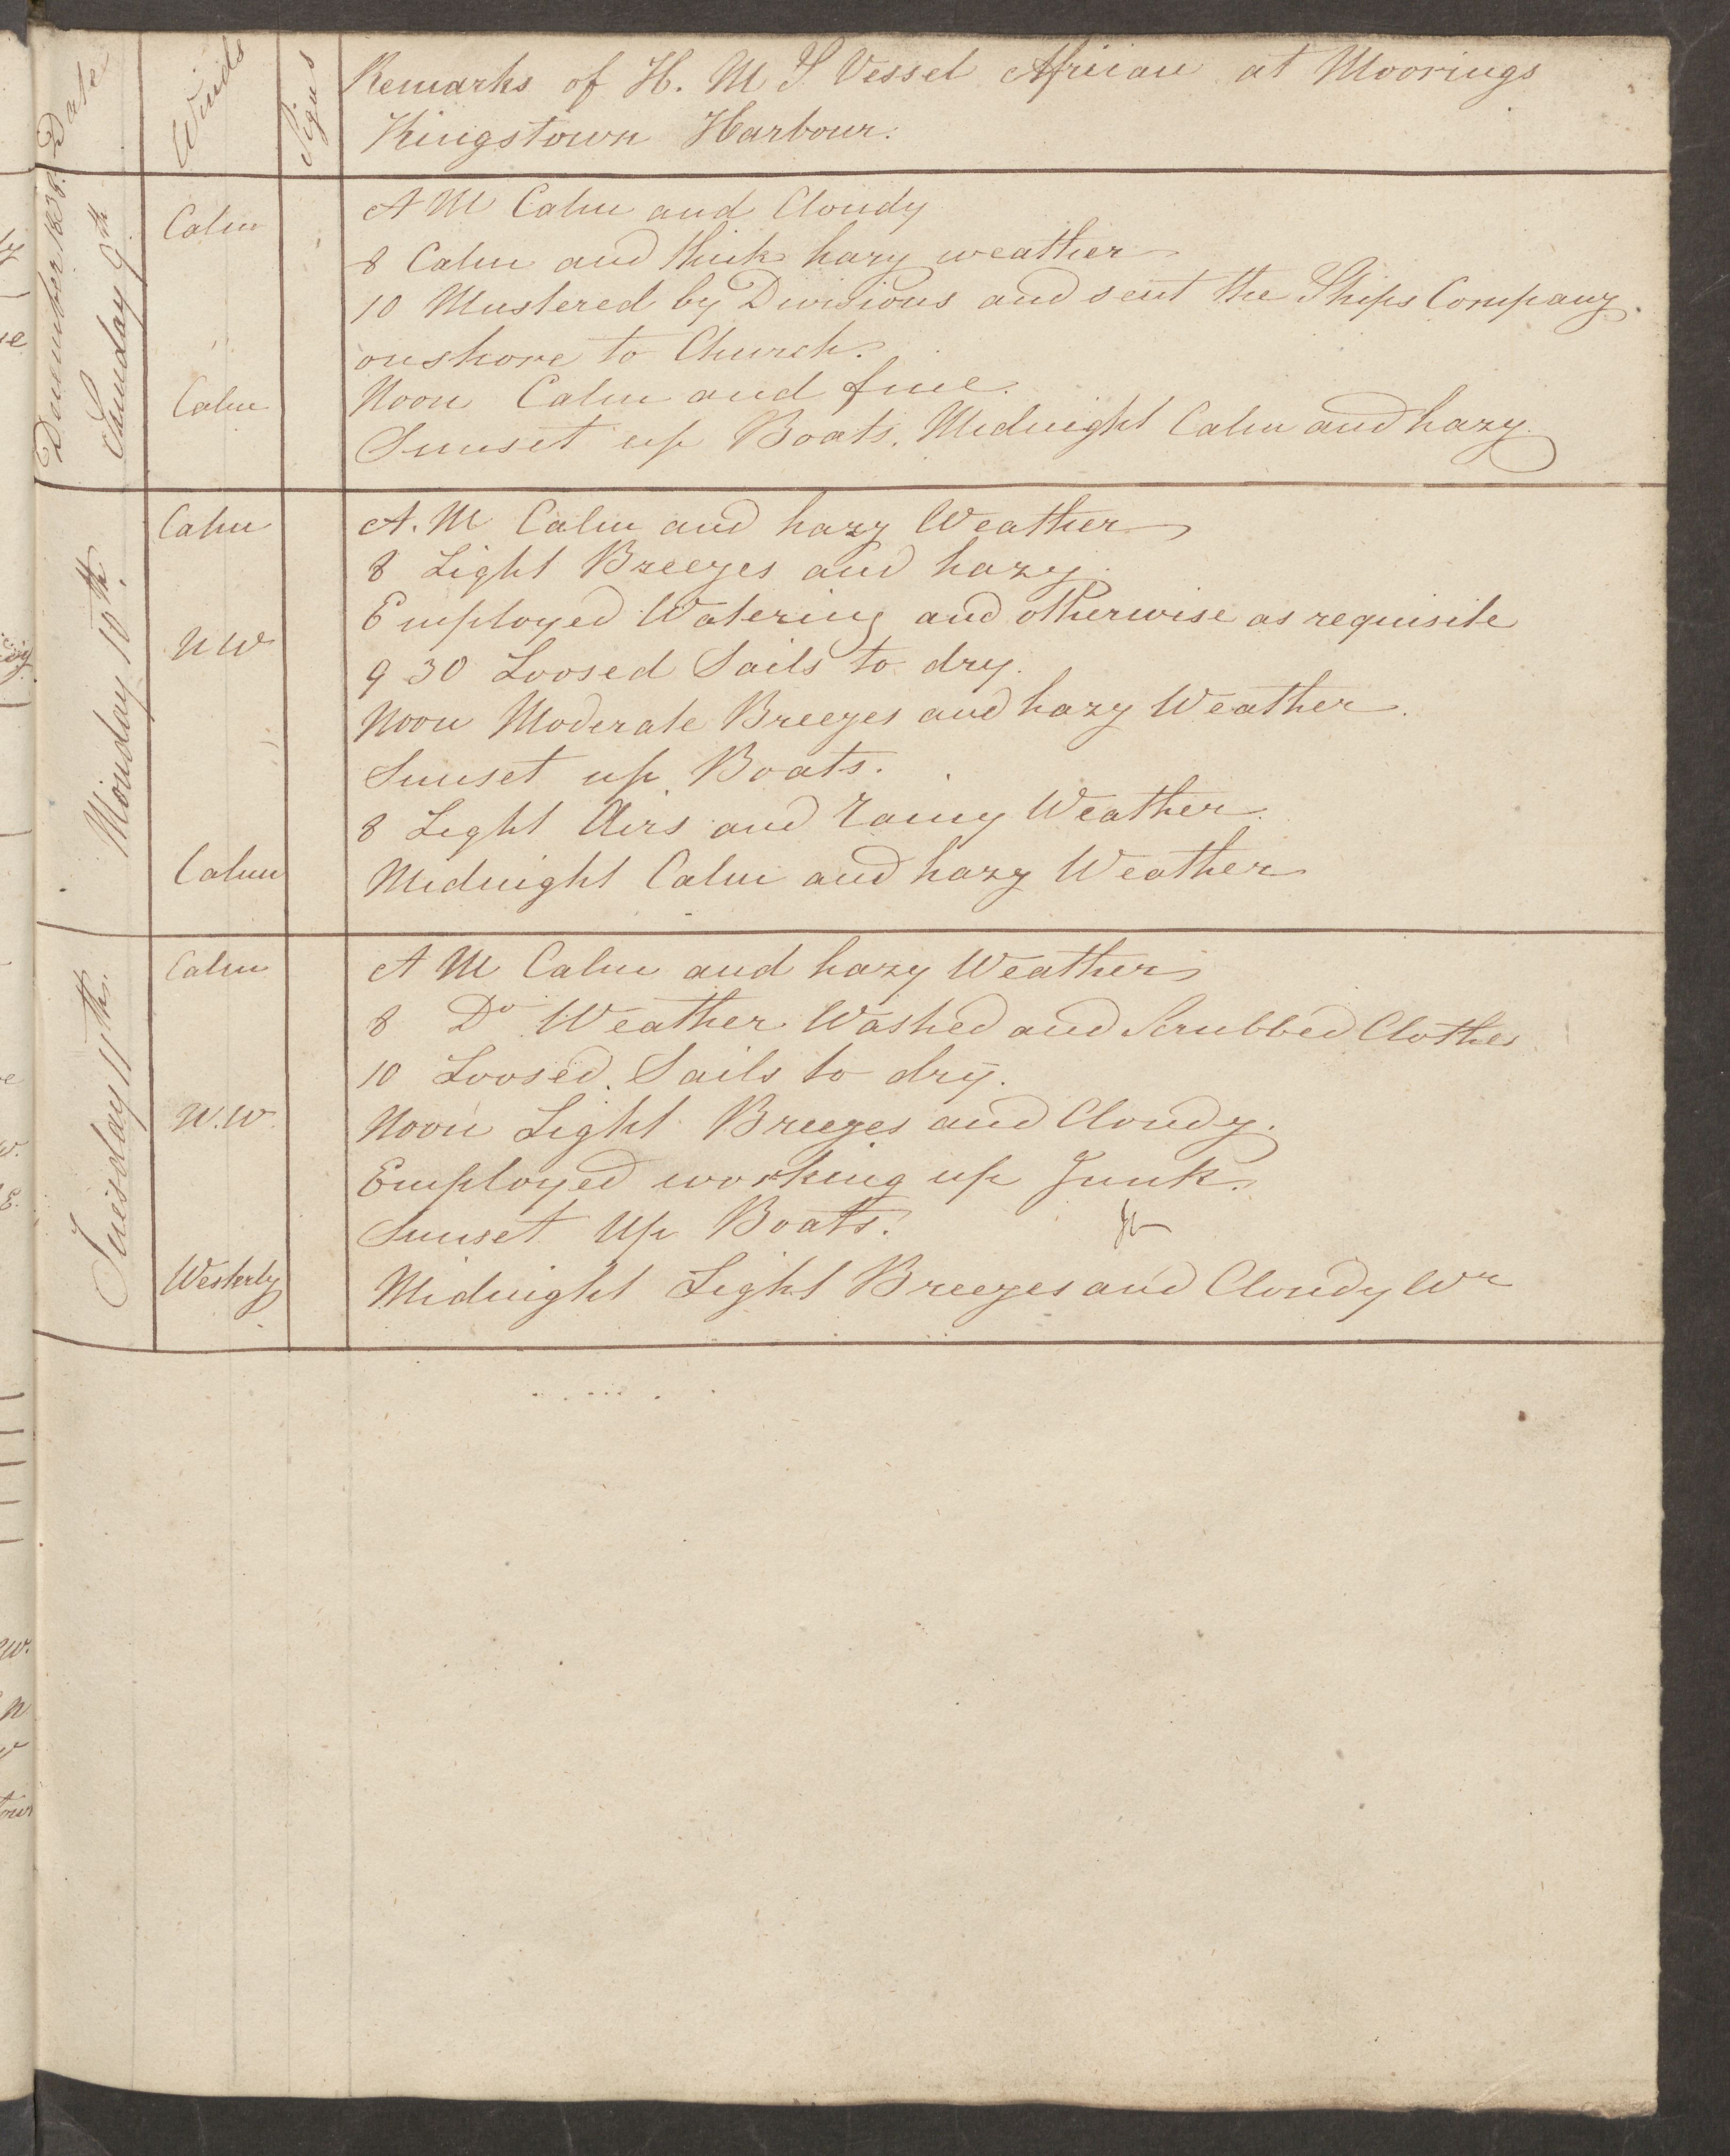 Date
Winds
Signs
Remarks of H. M S Vessel African at Moorings
Kingstown Harbour.
December 1838.
Sunday 9th
Calm
Calm
A M Calm and Cloudy
8 Calm and thick hazy weather
10 Mustered by Divisions and sent the Ships Company
on shore to Church.
Noon Calm and fine.
Sunset up Boats. Midnight Calm and hazy.
Monday 10th.
Calm
N W
Calm
A. M Calm and hazy Weather
8 Light Breezes and hazy.
Employed Watering and otherwise as requisite
9 30 Loosed Sails to dry.
Noon Moderate Breezes and hazy Weather.
Sunset up Boats.
8 Light Airs and rainy Weather.
Midnight Calm and hazy Weather
Tuesday 11th.
Calm
N.W.
Westerly
A M Calm and hazy Weather
8 Do Weather Washed and Scrubbed Clothes
10 Loosed Sails to dry.
Noon Light Breezes and Cloudy.
Employed working up Junk.
Sunset Up Boats.
Midnight Light Breezes and Cloudy Wr